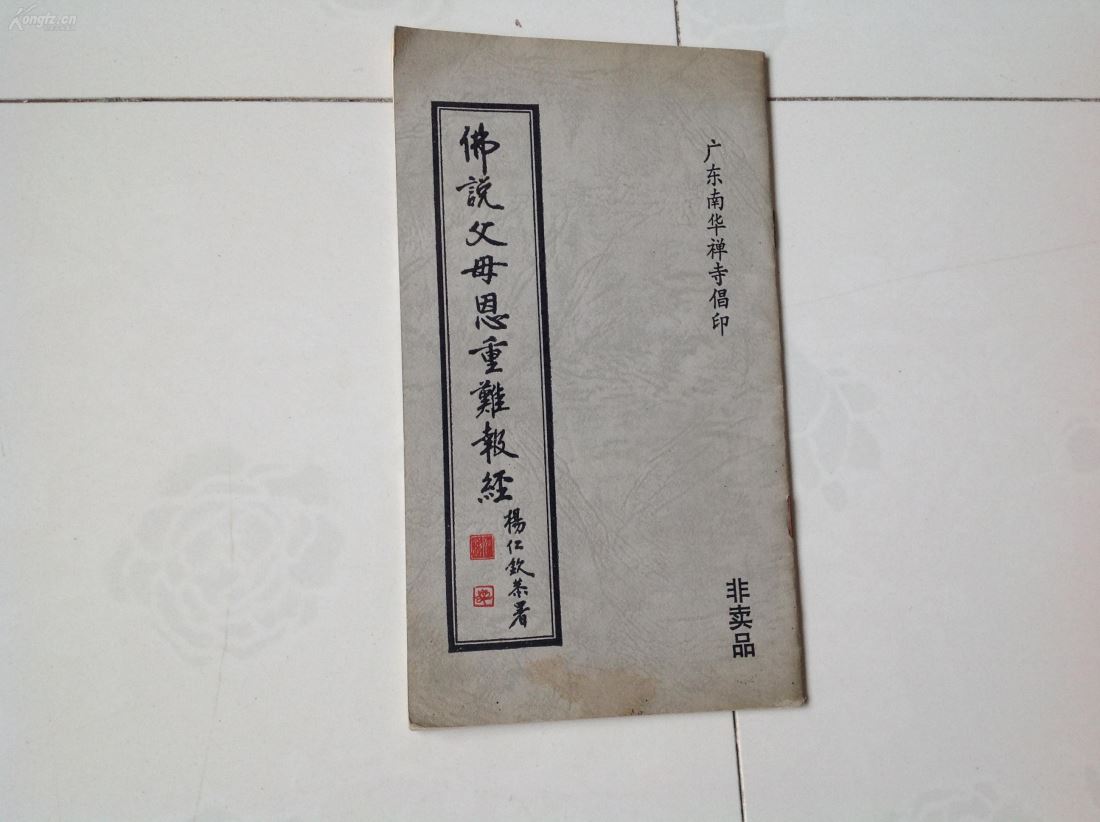 Kongfz.cn
广东南华禅寺倡印
非卖品
佛說父母恩重難報經
楊仁欽恭署